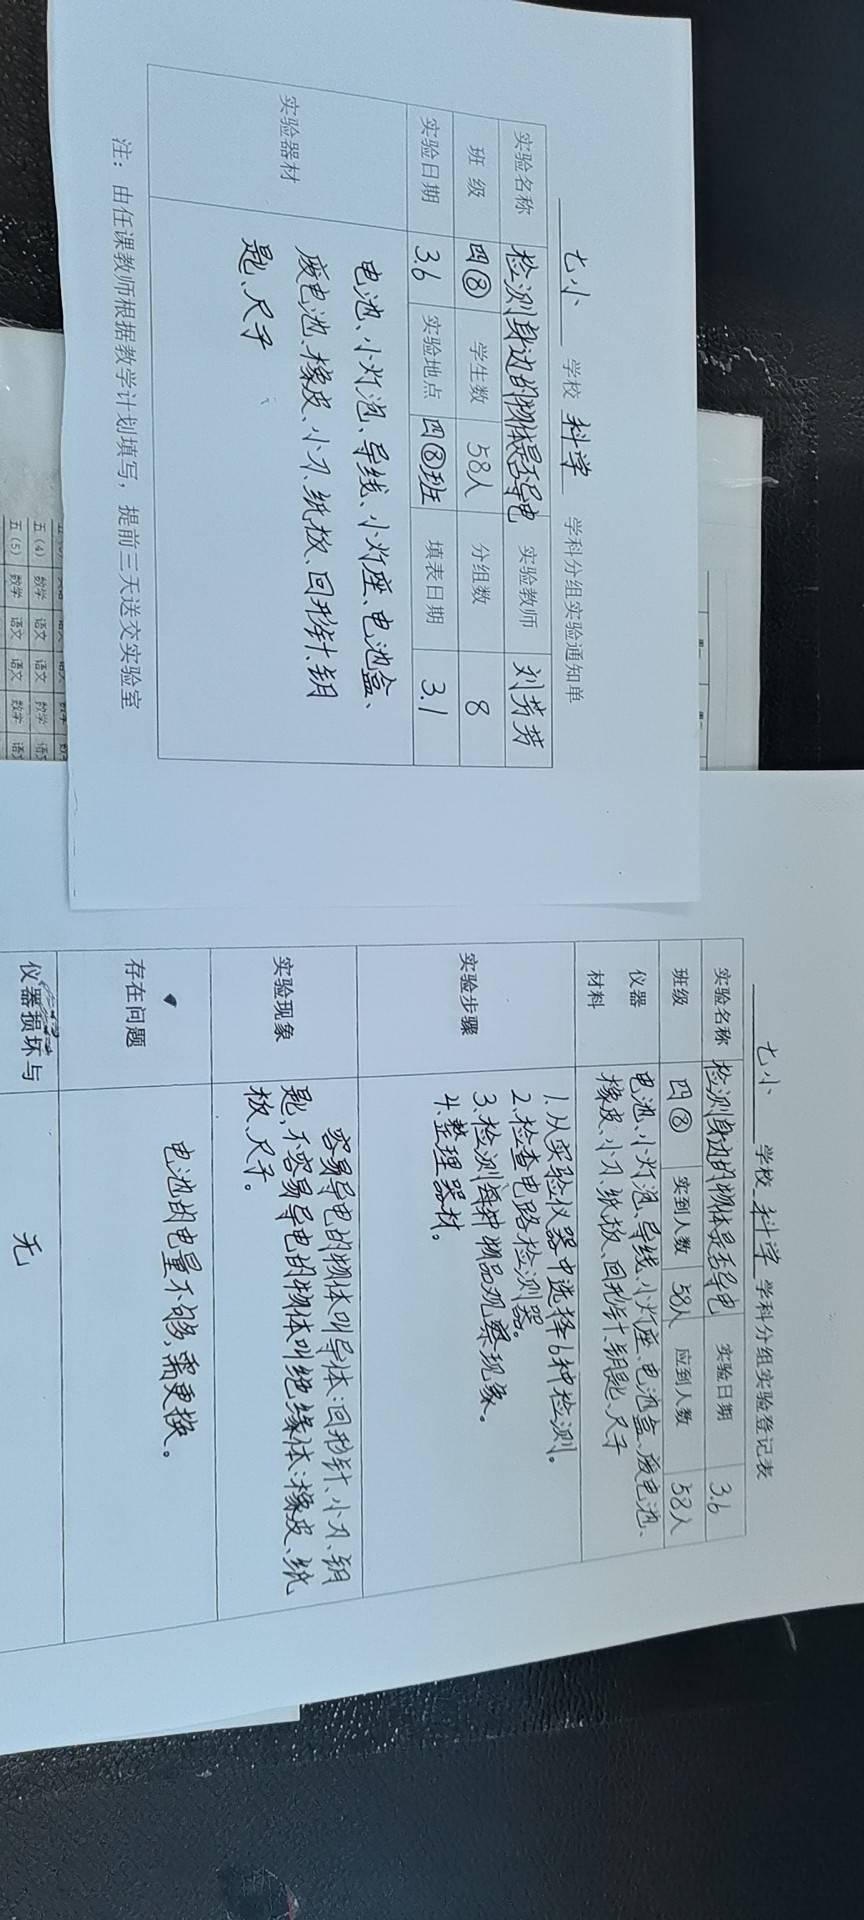 七小 学校 科学 学科分组实验通知单
实验名称 检测身边的物体是否导电 实验教师 刘芳芳
班级 四⑧ 学生数 58人 分组数 8
实验日期 3.6 实验地点 四⑧班 填表日期 3.1
实验器材
电池、小灯泡、导线、小灯座、电池盒、
废电池、橡皮、小刀、纸板、回形针、钥
匙、尺子
注：由任课教师根据教学计划填写，提前三天送交实验室
七小 学校 科学 学科分组实验登记表
实验名称 检测身边的物体是否导电 实验日期 3.6
班级 四⑧ 实到人数 58人 应到人数 58人
仪器
材料
电池、小灯泡、导线、小灯座、电池盒、废电池、
橡皮、小刀、纸板、回形针、钥匙、尺子
实验步骤
1.从实验仪器中选择6种检测。
2.检查电路检测器。
3.检测每种物品观察现象。
4.整理器材。
实验现象
容易导电的物体叫导体:回形针、小刀、钥
匙,不容易导电的物体叫绝缘体:橡皮、纸
板、尺子。
存在问题
电池的电量不够,需更换。
仪器损坏与
无
五(4) 数学 语文 语文 数学 语文
五(5) 数学 语文 语文 数学 语文